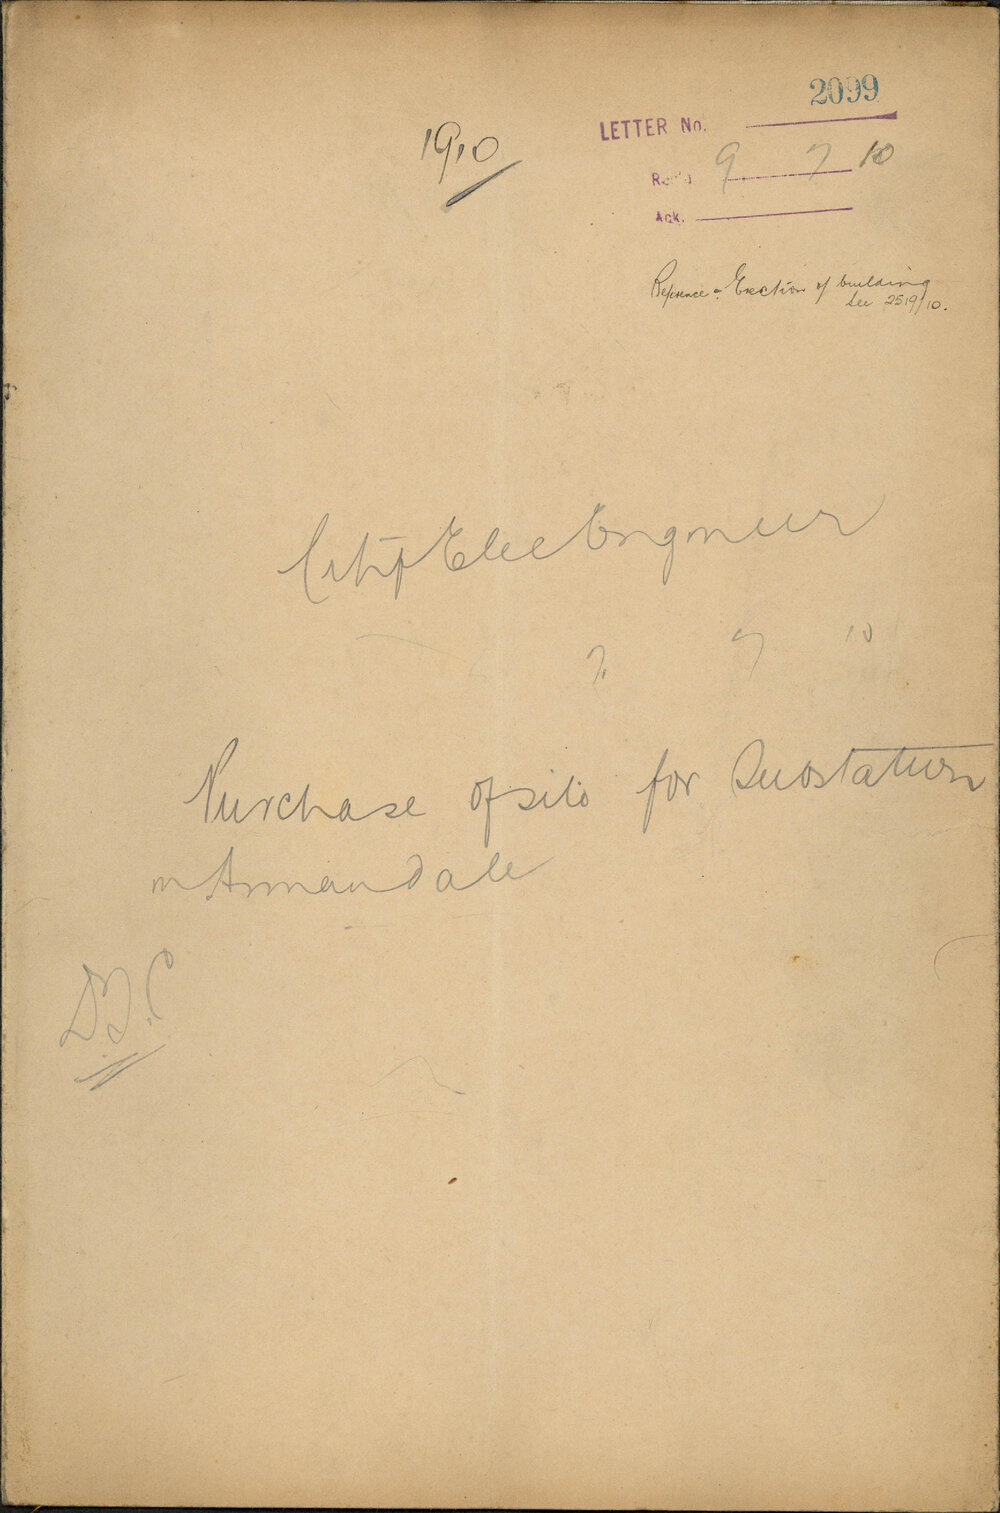 2099
1910
LETTER No.
Rec'd 9. 7 10
Ack.
Reference - Erection of building
see 2519/10.
City Elec Engineer
7. 7 10
Purchase of site for Substation
in Annandale